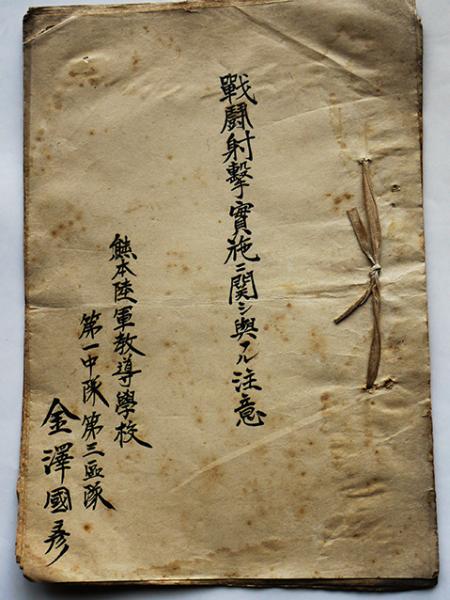 戰鬪射擊實施ニ関シ與フル注意
熊本陸軍教導學校
第一中隊第三區隊
金澤國彦